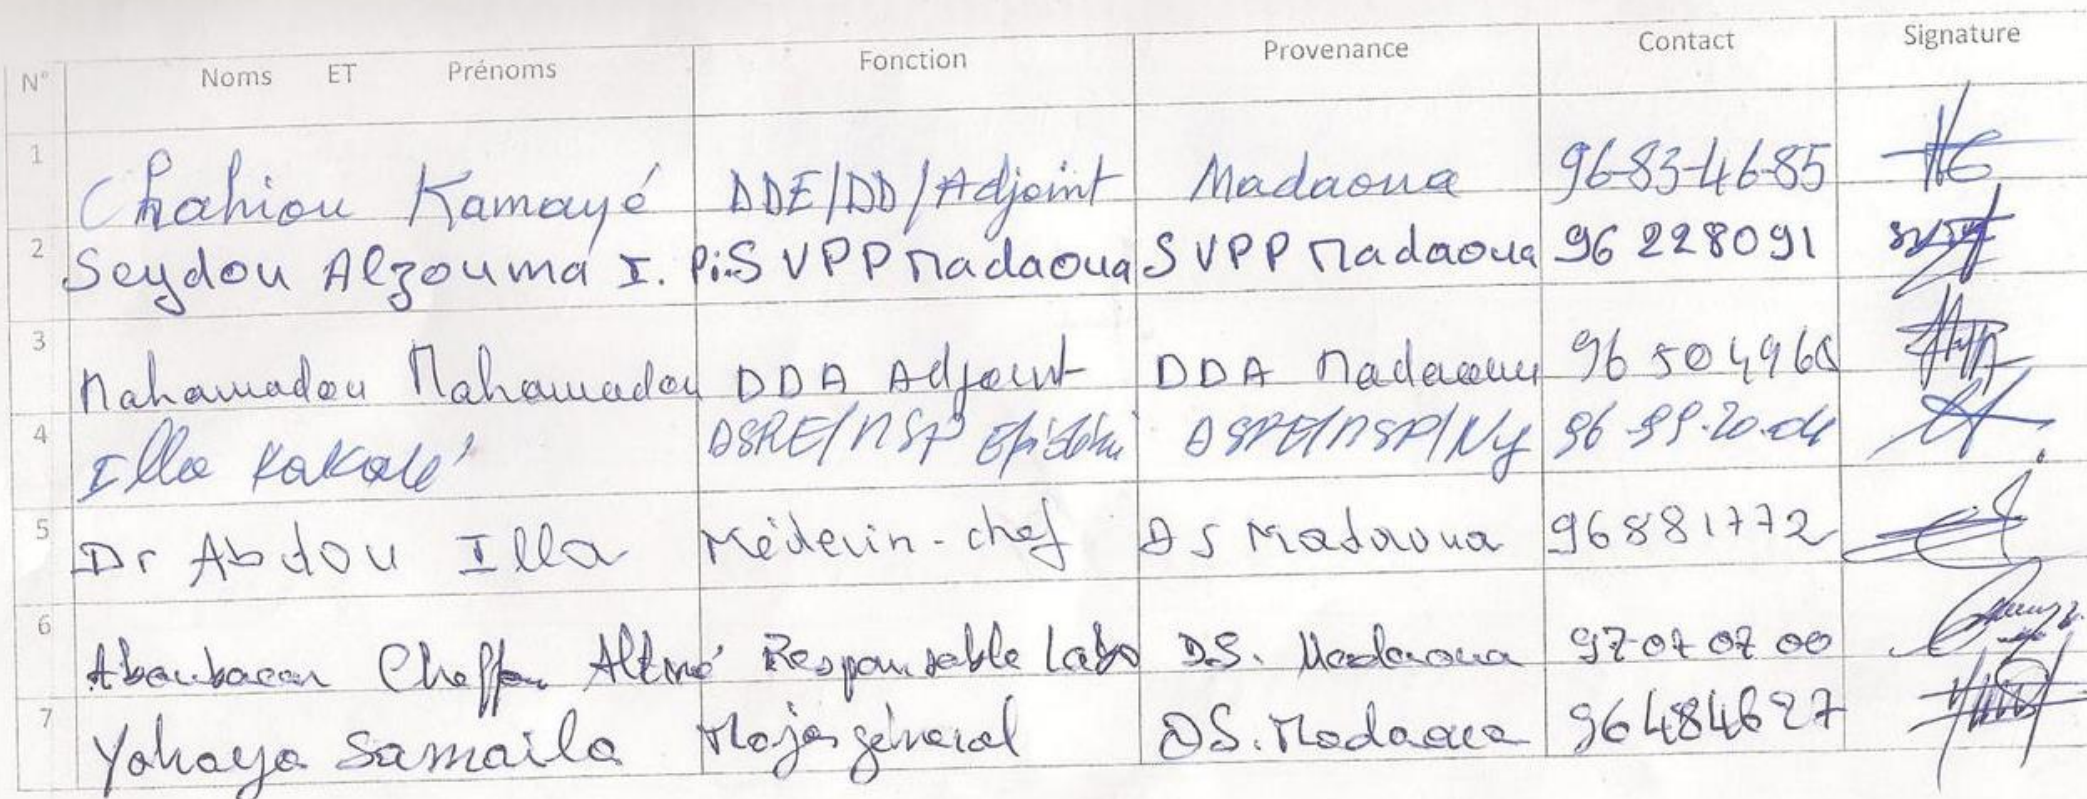 N° Noms ET Prénoms Fonction Provenance Contact Signature
1 Chahiou Kamayé DDE/DD/Adjoint Madaoua 96-83-46-85
2 Seydou Alzouma I. P.i.S VPP Madaoua SVPP Madaoua 96 228091
3 Mahamadou Mahamadou DDA Adjoint DDA Madaoua 96 504968
4 Illa Kakalé DSRE/MSP DSRE/MSP/Ny 96-99-20-04
5 Dr Abdou Illa Médecin-chef DS Madaoua 96881772
6 Aboubacar Cheffou Responsable labo D.S. Madaoua 97 07 07 00
7 Yahaya Samaila Major géneral DS. Madaoua 96484627